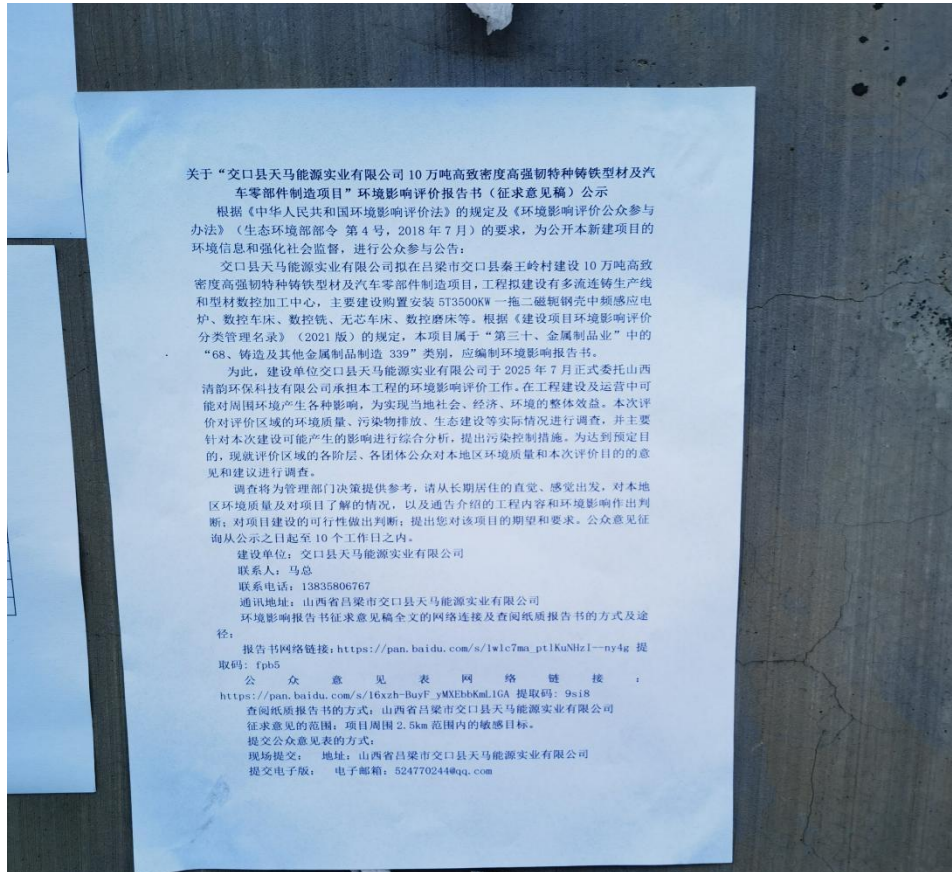 关于“交口县天马能源实业有限公司 10 万吨高致密度高强韧特种铸铁型材及汽
车零部件制造项目”环境影响评价报告书（征求意见稿）公示
根据《中华人民共和国环境影响评价法》的规定及《环境影响评价公众参与
办法》（生态环境部部令 第 4 号，2018 年 7 月）的要求，为公开本新建项目的
环境信息和强化社会监督，进行公众参与公告：
交口县天马能源实业有限公司拟在吕梁市交口县秦王岭村建设 10 万吨高致
密度高强韧特种铸铁型材及汽车零部件制造项目，工程拟建设有多流连铸生产线
和型材数控加工中心，主要建设购置安装 5T3500KW 一拖二磁轭钢壳中频感应电
炉、数控车床、数控铣、无芯车床、数控磨床等。根据《建设项目环境影响评价
分类管理名录》（2021 版）的规定，本项目属于“第三十、金属制品业”中的
“68、铸造及其他金属制品制造 339”类别，应编制环境影响报告书。
为此，建设单位交口县天马能源实业有限公司于 2025 年 7 月正式委托山西
清韵环保科技有限公司承担本工程的环境影响评价工作。在工程建设及运营中可
能对周围环境产生各种影响，为实现当地社会、经济、环境的整体效益。本次评
价对评价区域的环境质量、污染物排放、生态建设等实际情况进行调查，并主要
针对本次建设可能产生的影响进行综合分析，提出污染控制措施。为达到预定目
的，现就评价区域的各阶层、各团体公众对本地区环境质量和本次评价目的的意
见和建议进行调查。
调查将为管理部门决策提供参考，请从长期居住的直觉、感觉出发，对本地
区环境质量及对项目了解的情况，以及通告介绍的工程内容和环境影响作出判
断；对项目建设的可行性做出判断；提出您对该项目的期望和要求。公众意见征
询从公示之日起至 10 个工作日之内。
建设单位：交口县天马能源实业有限公司
联系人：马总
联系电话：13835806767
通讯地址：山西省吕梁市交口县天马能源实业有限公司
环境影响报告书征求意见稿全文的网络连接及查阅纸质报告书的方式及途
径：
报告书网络链接：https://pan.baidu.com/s/1wlc7ma_ptlKuNHzI--ny4g 提
取码: fpb5
公众意见表网络链接：
https://pan.baidu.com/s/16xzh-BuyF_yMXEbbKmL1GA 提取码: 9si8
查阅纸质报告书的方式：山西省吕梁市交口县天马能源实业有限公司
征求意见的范围：项目周围 2.5km 范围内的敏感目标。
提交公众意见表的方式：
现场提交： 地址：山西省吕梁市交口县天马能源实业有限公司
提交电子版： 电子邮箱：524770244@qq.com